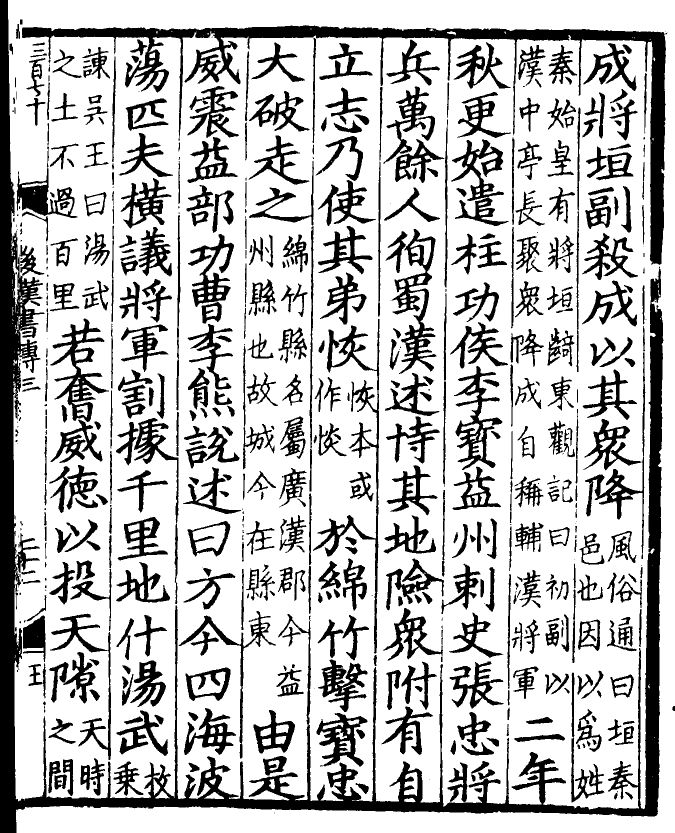 成將垣副殺成以其衆降風俗通曰垣秦邑也因以爲姓
秦始皇有將垣齮東觀記曰初副以漢中亭長聚衆降成自稱輔漢將軍二年
秋更始遣柱功侯李寶益州刺史張忠將
兵萬餘人徇蜀漢述恃其地險衆附有自
立志乃使其弟恢恢本或作惔於綿竹擊寶忠
大破走之綿竹縣名屬廣漢郡今益州縣也故城今在縣東由是
威震益部功曹李熊說述曰方今四海波
蕩匹夫橫議將軍割據千里地什湯武枚乘
諫吳王曰湯武之土不過百里若奮威德以投天隙天時之間
三百七十
後漢書傳三
王